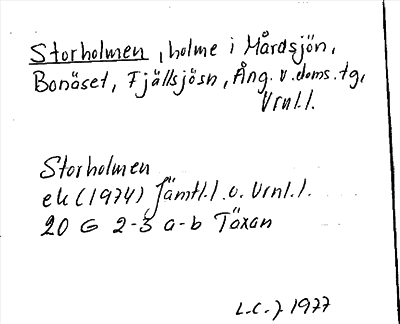 Storholmen, holme i Mårdsjön,
Bonäset, Fjällsjösn, Ång. v. doms. tg,
Vrnl.l.
Storholmen
ek (1974) Jämtl.l. o. Vrnl.l.
20 G 2-3 a-b Täxan
L.C.J 1977